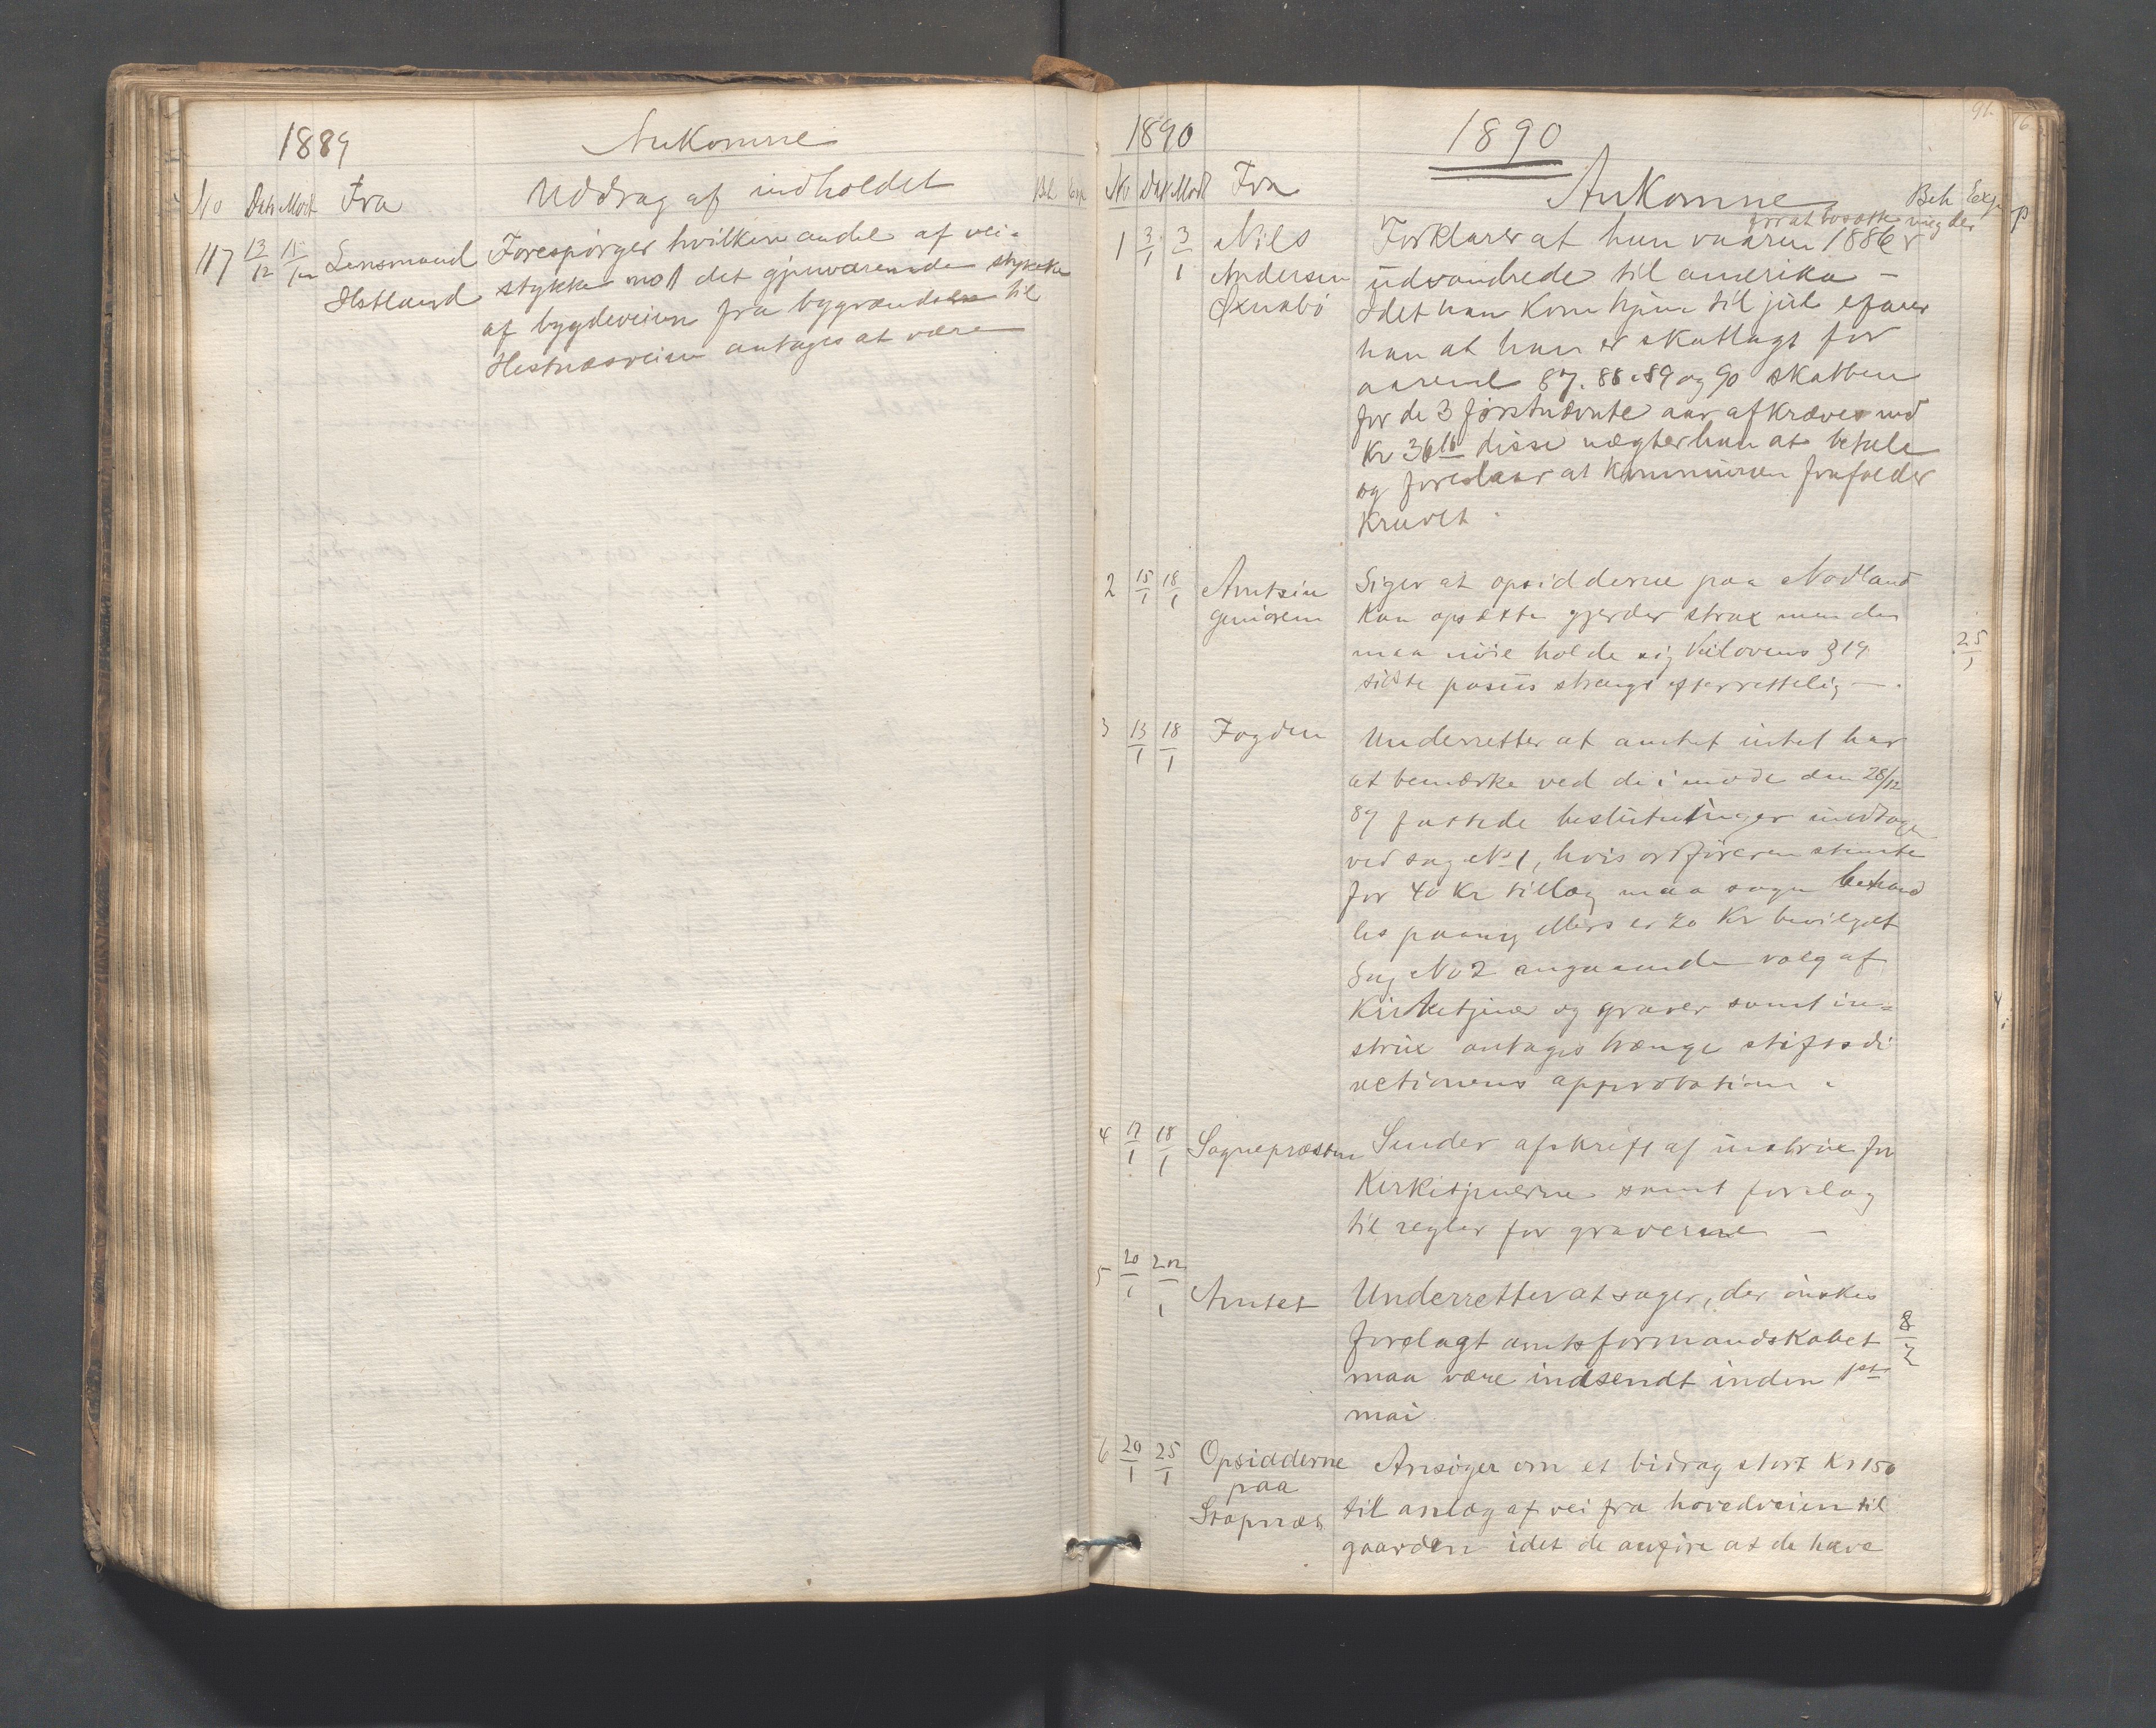 1889 Ankomne
No Dato Modt Fra Uddrag af indholdet Beh Exp
117 13/12 15/12 Lensmand Forespörger hvilken andel af vei-
Hetland stykke no 1 det gjenværende stykke
af bygdeveien fra bygrændsen til
Hestnæsveien antages at være
1890 1890 91.
Ankomne
No Dat Modt Fra Beh Exp
for at bosætte sig der
1 3/1 3/1 Nils Forklarer at han vaaren 1886
Andersen udvandrede til amerika -
Idet han kom hjem til jul erfarer
han at han er skatlagt for
aarene 87. 88. 89 og 90 skatten
for de 3 förstnævnte aar afkræves med
Kr 36 disse nægter han at betale
og foreslaar at kommunen frafalder
Kravet.
2 15/1 18/1 Amtsin Siger at opsidderne paa Nodland
geniören kan opsætte gjerder strax men de
maa nöie holde sig Veilovens § 19 25/1
sidste passus strengt efterrettelig -.
3 13/1 18/1 Fogden Underretter at amtet intet har
at bemærke ved de i möde den 28/12
89 fattede beslutninger undtagen
ved sag No 1, hvis ordföreren stemte
for 40 Kr tillæg maa sagen behand
les paany ellers er 20 Kr bevilget
Sag No 2 angaaende valg af
Kirketjener og graver samt in=
strux antages trænge stiftsdi
rectionens approbation.
4 17/1 18/1 Sognepræsten Sender afskrift af instrux for
Kirketjenerne samt forslag
til regler for graverne -
5 20/1 22/1 Amtet Underretter at sager, der önskes
forelagt amtsformandskabet 8/2
maa være indsendt inden 1ste
mai.
6 20/1 25/1 Opsidderne Ansöger om et bidrag stort Kr 150
paa
Stapnæs til anlæg af vei fra hovedveien til
gaarden idet de anföre at de have